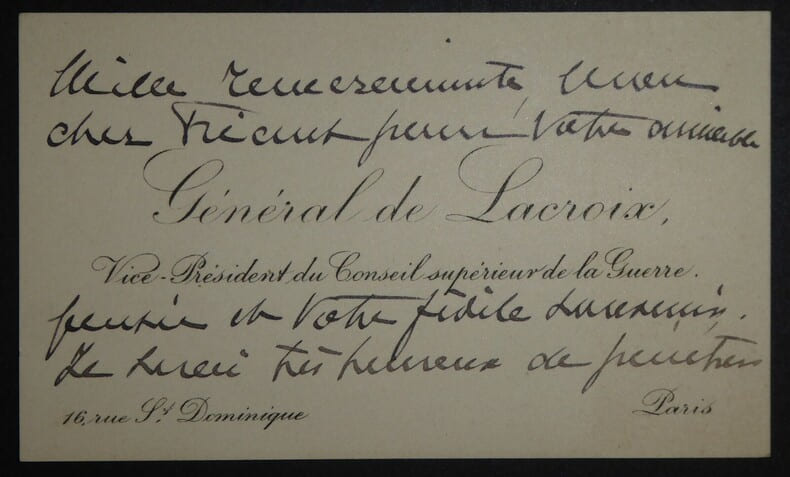 Mille remerciements, mon
cher Tricaut pour votre aimable
Général de Lacroix,
Vice-Président du Conseil supérieur de la Guerre.
pensée et votre fidèle souvenir.
Je serai très heureux de
16, rue St. Dominique Paris